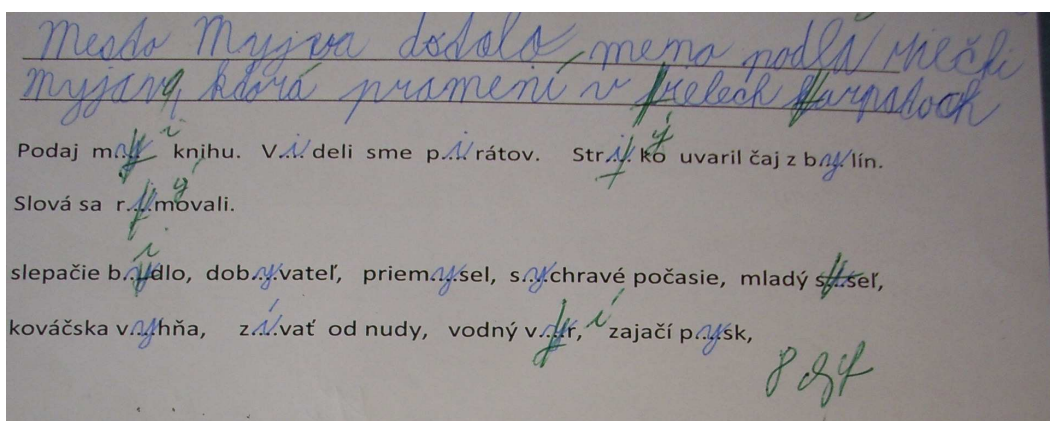 Mesto Myjava dostalo meno podľa riečki
Myjavy, ktorá pramení v
Podaj m..y.. knihu. V..i..deli sme p..i..rátov. Str..y..ko uvaril čaj z b..y..lín.
Slová sa r..y..movali.
slepačie b..y..dlo, dob..y..vateľ, priem..y..sel, s..y..chravé počasie, mladý s..y..seľ,
kováčska v..y..hňa, z..í..vať od nudy, vodný v..y..r, zajačí p..y..sk,